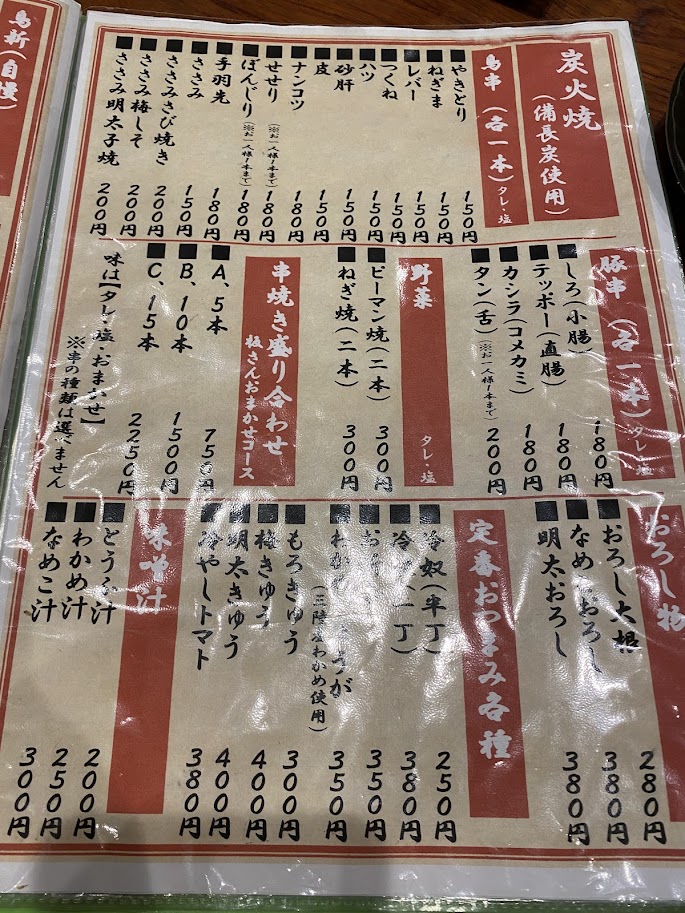 鳥新(自慢
炭火焼
(備長炭使用)
鳥串(各一本)タレ・塩
やきとり 150円
ねぎま 150円
レバー 150円
つくね 150円
ハツ 150円
砂肝 150円
皮 150円
ナンコツ 180円
せせり(※お一人様1本まで) 180円
ぼんじり(※お一人様1本まで) 180円
手羽先 180円
ささみ 150円
ささみさび焼き 200円
ささみ梅しそ 200円
ささみ明太子焼 200円
豚串(各一本)タレ・塩
しろ(小腸) 180円
テッポー(直腸) 180円
カシラ(コメカミ) 180円
タン(舌)(※お一人様1本まで) 200円
野菜 タレ・塩
ピーマン焼(二本) 300円
ねぎ焼(二本) 300円
串焼き盛り合わせ
板さんおまかせコース
A、5本 750円
B、10本 1500円
C、15本 2250円
味は【タレ・塩・おまかせ】
※串の種類は選べません
おろし物
おろし大根 280円
なめこおろし 380円
明太おろし 380円
定番おつまみ各種
冷奴(半丁) 250円
冷奴(一丁) 380円
350円
350円
(三陸産わかめ使用)
もろきゅう 300円
梅きゅう 400円
明太きゅう 400円
冷やしトマト 380円
味噌汁
とうふ汁 200円
わかめ汁 250円
なめこ汁 300円